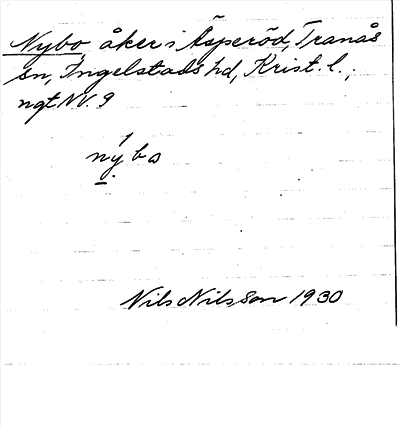 Nybo, åker i Äsperöd, Tranås
sn, Ingelstads hd, Krist. l.,
ngt NV. 9
nýbo
Nils Nilsson 1930